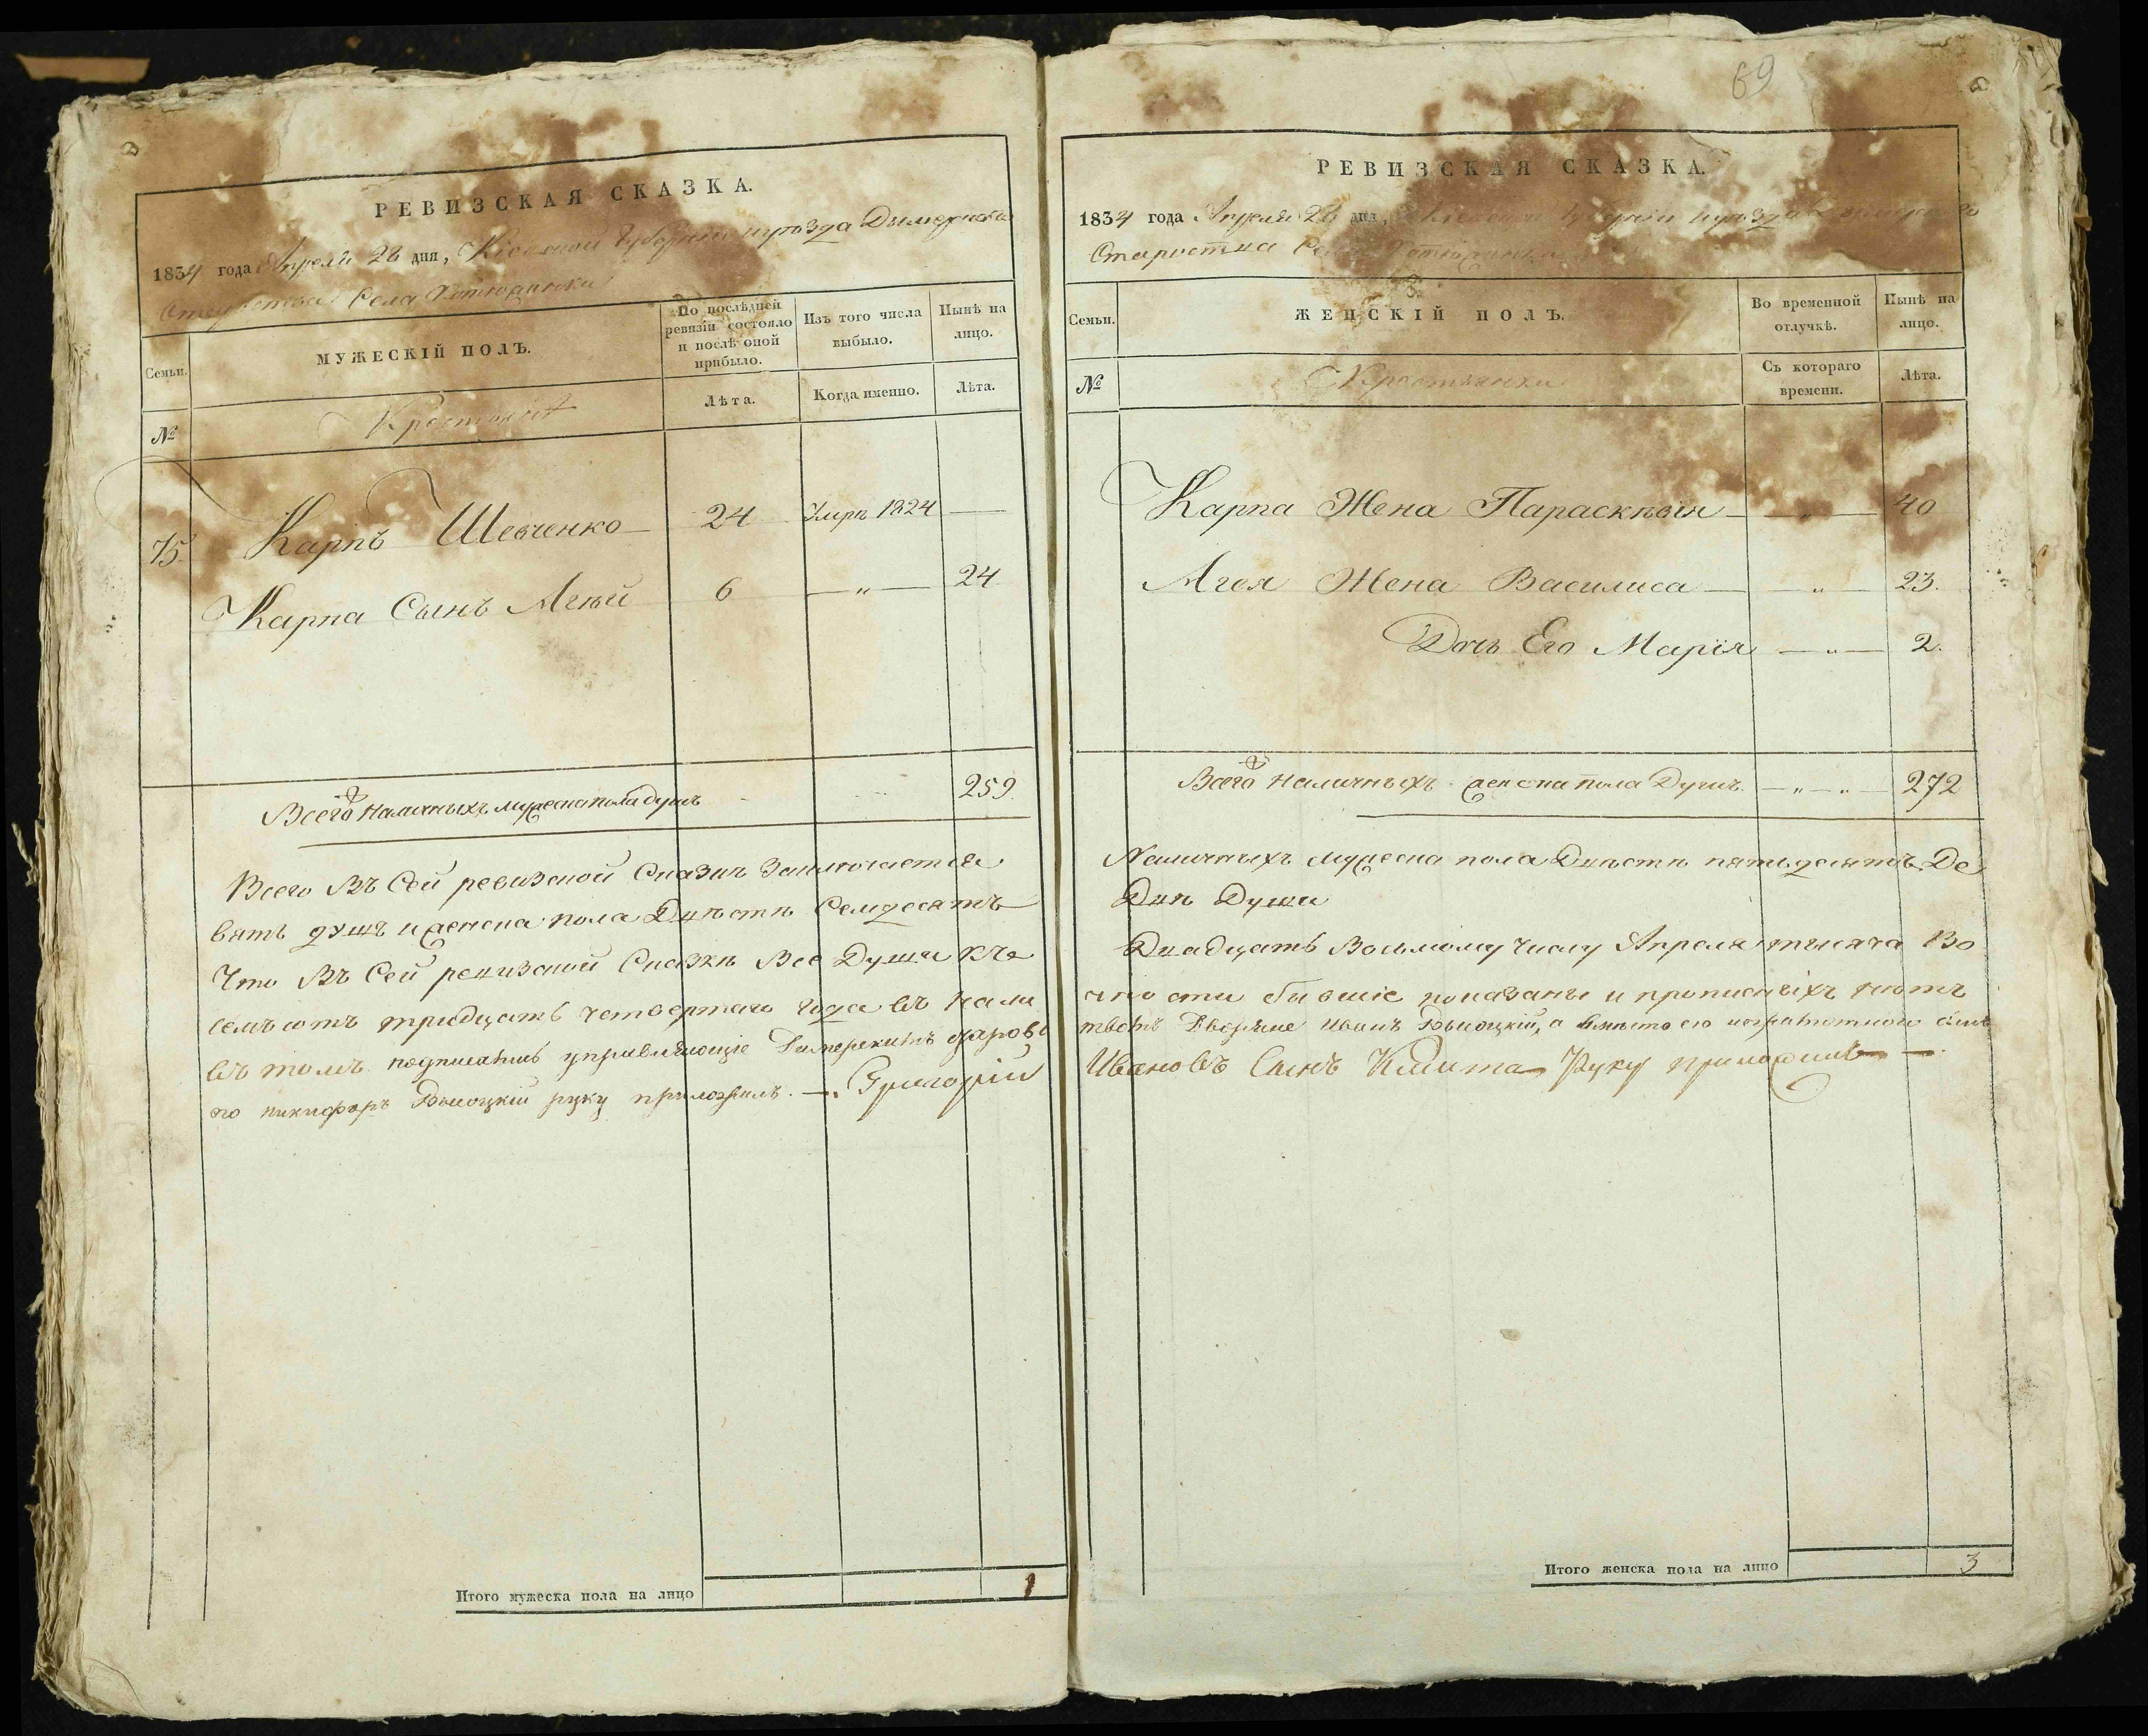 РЕВИЗСКАЯ СКАЗКА.
1834 года Апреля 28 дня, Кіевской Губерніи и уѣзда Дымерскаго
Староства Села
Семьи.
МУЖЕСКІЙ ПОЛЪ.
По послѣдней ревизіи состояло и послѣ оной прибыло.
Изъ того числа выбыло.
Нынѣ на лицо.
№
Крестьяне
Лѣта.
Когда именно.
Лѣта.
75. Карпъ Шевченко 24 Умръ 1824 —
Карпа Сынъ Агѣй 6 — „ — 24
Всего Наличныхъ мужеска пола душъ 259.
Всего Въ Сей ревизской Сказкѣ Заключается
вять душъ и женска пола Двѣсти Семдесятъ
Что Въ Сей ревизской Сказкѣ Все Души
семъсотъ тридцать четвертаго года въ нали
въ томъ подписались управляющіе
его никифоръ Высоцкій руку приложилъ. —. Григорій
Итого мужеска пола на лицо 1
69
РЕВИЗСКАЯ СКАЗКА.
1834 года Апреля 28 дня, Кіевской Губерніи и уѣзда
Староства Села
Семьи.
ЖЕНСКІЙ ПОЛЪ.
Во временной отлучкѣ.
Нынѣ на лицо.
№
Крестьянки
Съ котораго времени.
Лѣта.
Карпа Жена Параскѣвія — „ — 40
Агея Жена Василиса — — „ — 23.
Дочь Его Марія — „ — 2.
Всего Наличныхъ женска пола Душъ. — „ — „ — 272
Наличныхъ мужеска пола Двѣсти пятьдесятъ Де
Двѣ Души
Двадцать Восьмому Числу Апреля тысяча Во
чности бывшіе показаны и прописныхъ нѣтъ
Дворяне иванъ Высоцкій, а вмѣсто его неграмотного сынъ
Ивановъ Сынъ Руку приложилъ — —.
Итого женска пола на лицо 3